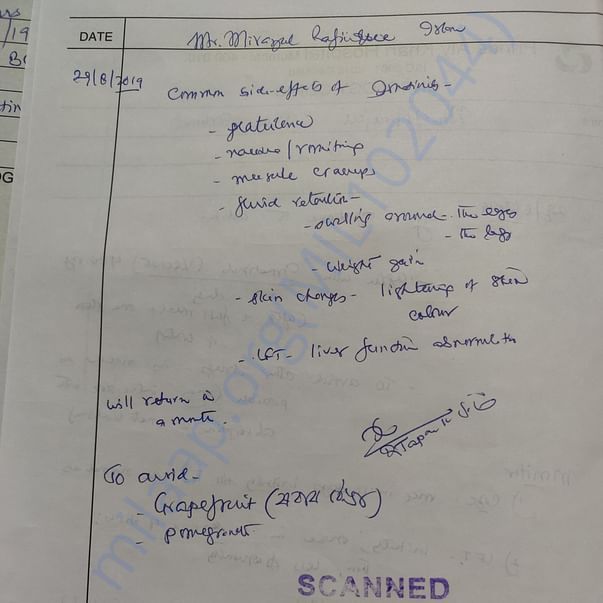 DATE
Mr. Mirazul Islam
29/8/2019
Common side-effects of Imatinib-
- flatulence
- nausea/vomiting
- muscle cramps
- fluid retention-
- swelling around- the eyes
- the legs
- weight gain
- skin changes- lightening of skin
colour
- LFT- liver function
will return in
a month.
To avoid-
- Grapefruit
- pomegranate
milaap.org(MILI102044)
SCANNED